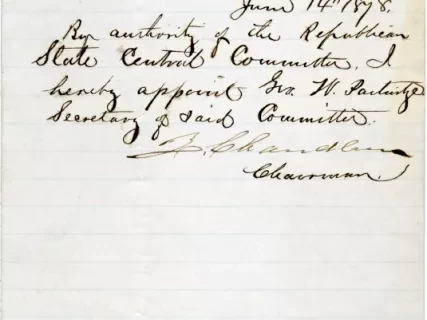 June 14th 1878.
By authority of the Republican
State Central Committee, I
hereby appoint Geo. W. Partridge
Secretary of said Committee.
Z. Chandler
Chairman.